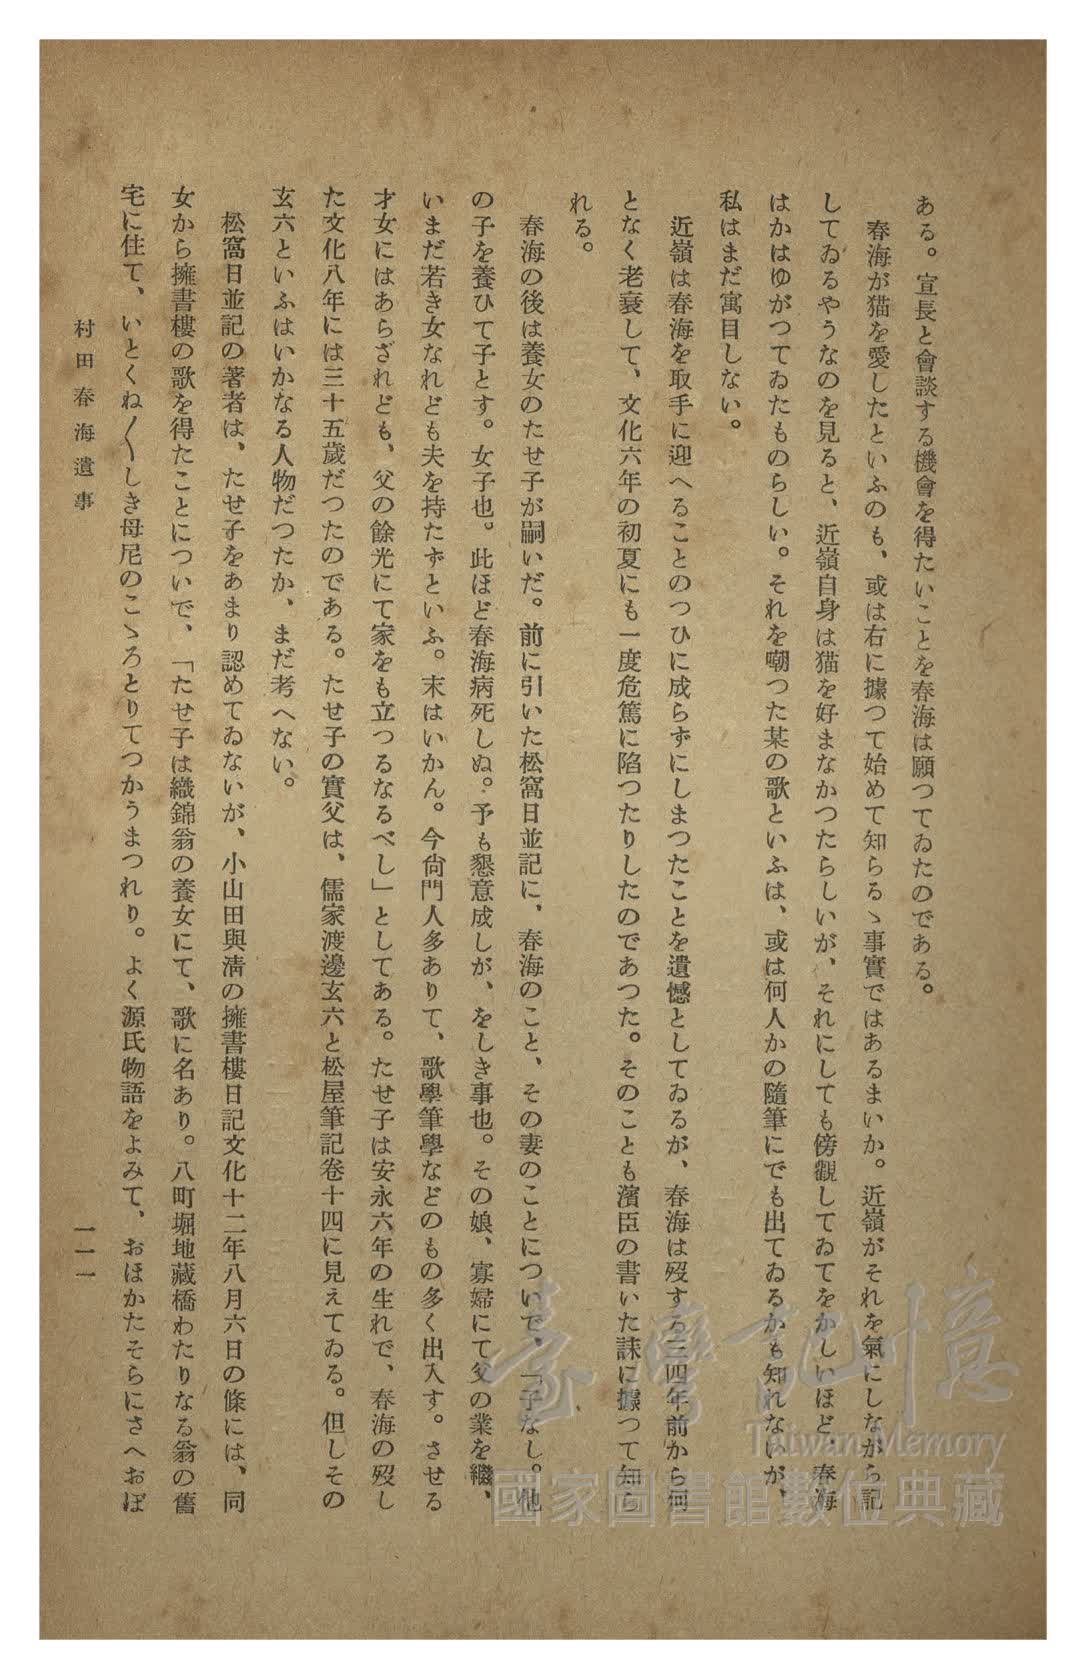 ある。宣長と會談する機會を得たいことを春海は願つてゐたのである。
春海が猫を愛したといふのも、或は右に據つて始めて知らるゝ事實ではあるまいか。近嶺がそれを氣にしながら記
してゐるやうなのを見ると、近嶺自身は猫を好まなかつたらしいが、それにしても傍觀してゐてをかしいほど、春海
はかはゆがつてゐたものらしい。それを嘲つた某の歌といふは、或は何人かの隨筆にでも出てゐるかも知れないが、
私はまだ寓目しない。
近嶺は春海を取手に迎へることのつひに成らずにしまつたことを遺憾としてゐるが、春海は歿する三四年前から何
となく老衰して、文化六年の初夏にも一度危篤に陷つたりしたのであつた。そのことも濱臣の書いた誄に據つて知ら
れる。
春海の後は養女のたせ子が嗣いだ。前に引いた松窩日並記に、春海のこと、その妻のことについで、「子なし。他
の子を養ひて子とす。女子也。此ほど春海病死しぬ。予も懇意成しが、をしき事也。その娘、寡婦にて父の業を繼、
いまだ若き女なれども夫を持たずといふ。末はいかん。今尙門人多ありて、歌學筆學などのもの多く出入す。させる
才女にはあらざれども、父の餘光にて家をも立つるなるべし」としてある。たせ子は安永六年の生れで、春海の歿し
た文化八年には三十五歲だつたのである。たせ子の實父は、儒家渡邊玄六と松屋筆記卷十四に見えてゐる。但しその
玄六といふはいかなる人物だつたか、まだ考へない。
松窩日並記の著者は、たせ子をあまり認めてゐないが、小山田與淸の擁書樓日記文化十二年八月六日の條には、同
女から擁書樓の歌を得たことについで、「たせ子は織錦翁の養女にて、歌に名あり。八町堀地藏橋わたりなる翁の舊
宅に住て、いとくね〱しき母尼のこゝろとりてつかうまつれり。よく源氏物語をよみて、おほかたそらにさへおぼ
村田春海遺事
一一一
臺灣記憶
Taiwan Memory
國家圖書館數位典藏